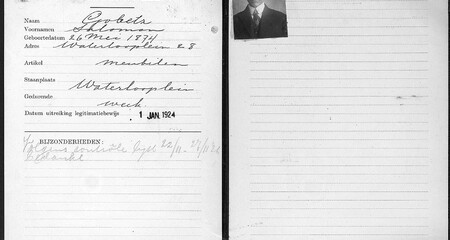 Naam
Voornamen Salomon
Geboortedatum 26 Mei 1874
Adres Waterlooplein 28
Artikel meubelen
Staanplaats Waterlooplein
Gedurende week
Datum uitreiking legitimatiebewijs 1 JAN. 1924
BIJZONDERHEDEN:
Volgens contrôle lijst 22/11 -
bedankt